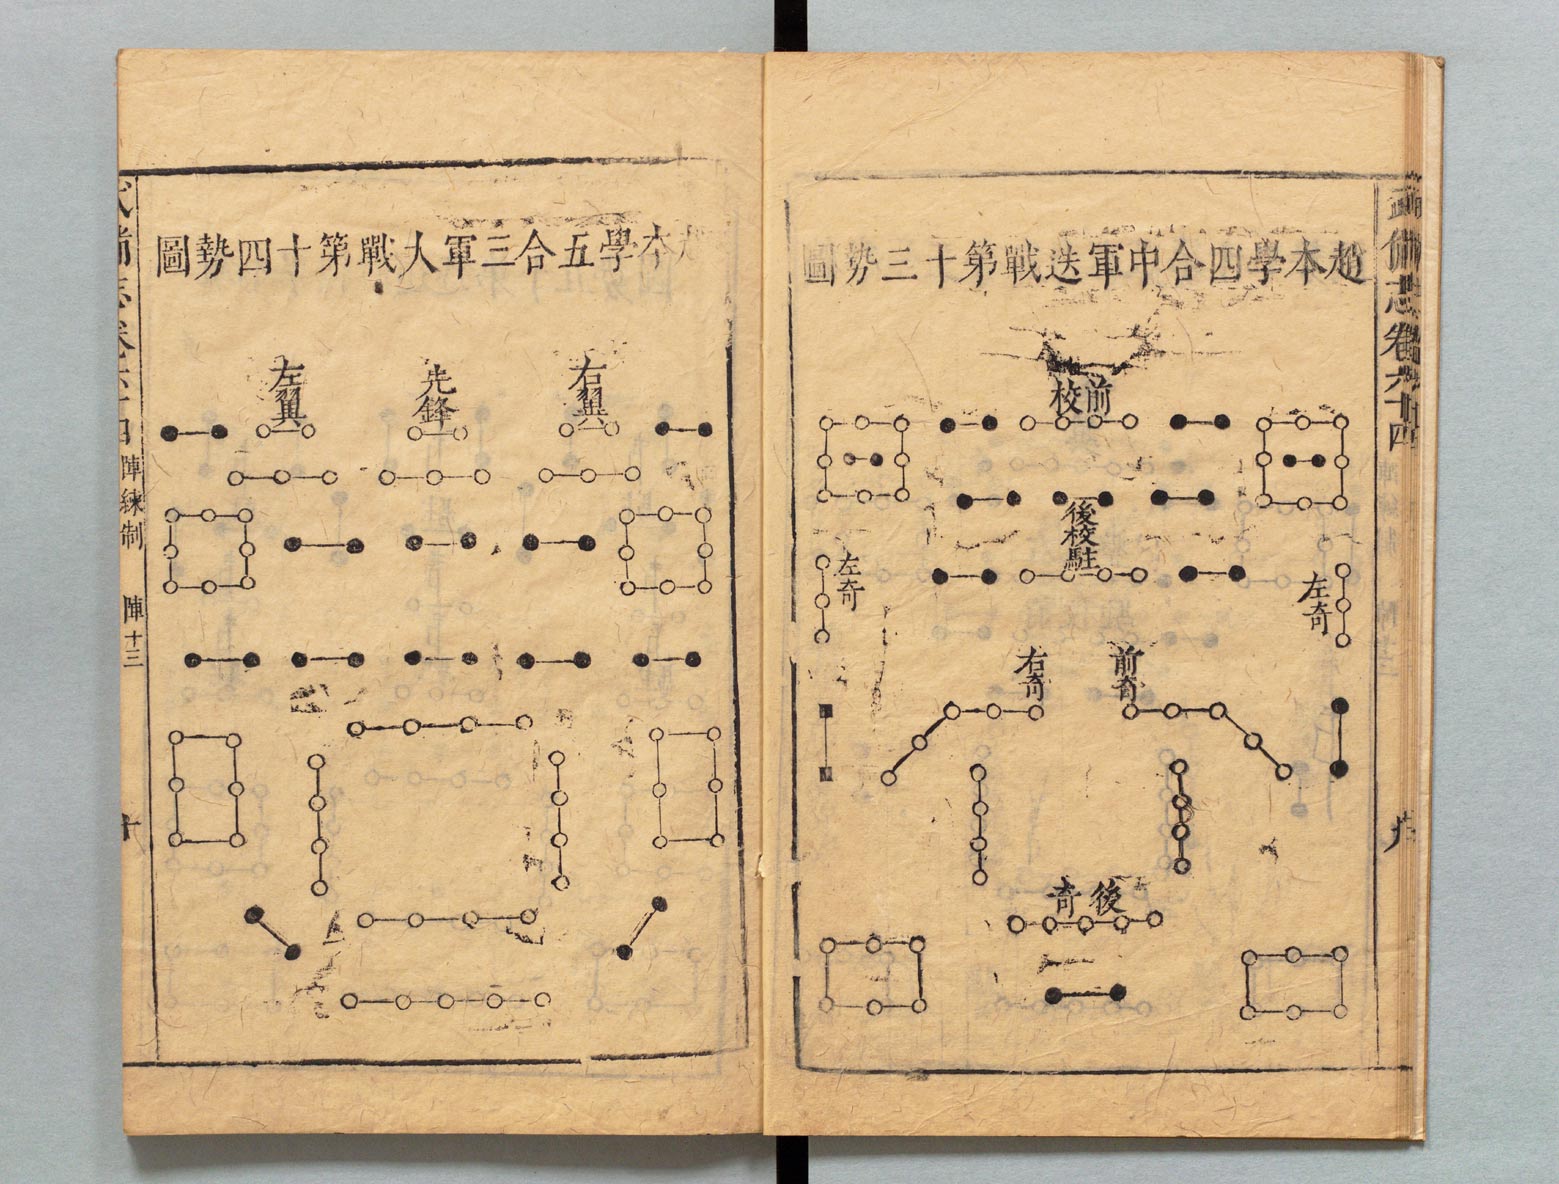 武備志卷六十四
趙本學四合中軍迭戰第十三勢圖
前校
後校駐
左奇
左奇
前奇
右奇
後奇
九
本學五合三軍大戰第十四勢圖
右翼
先鋒
左翼
陣練制
陣十三
十